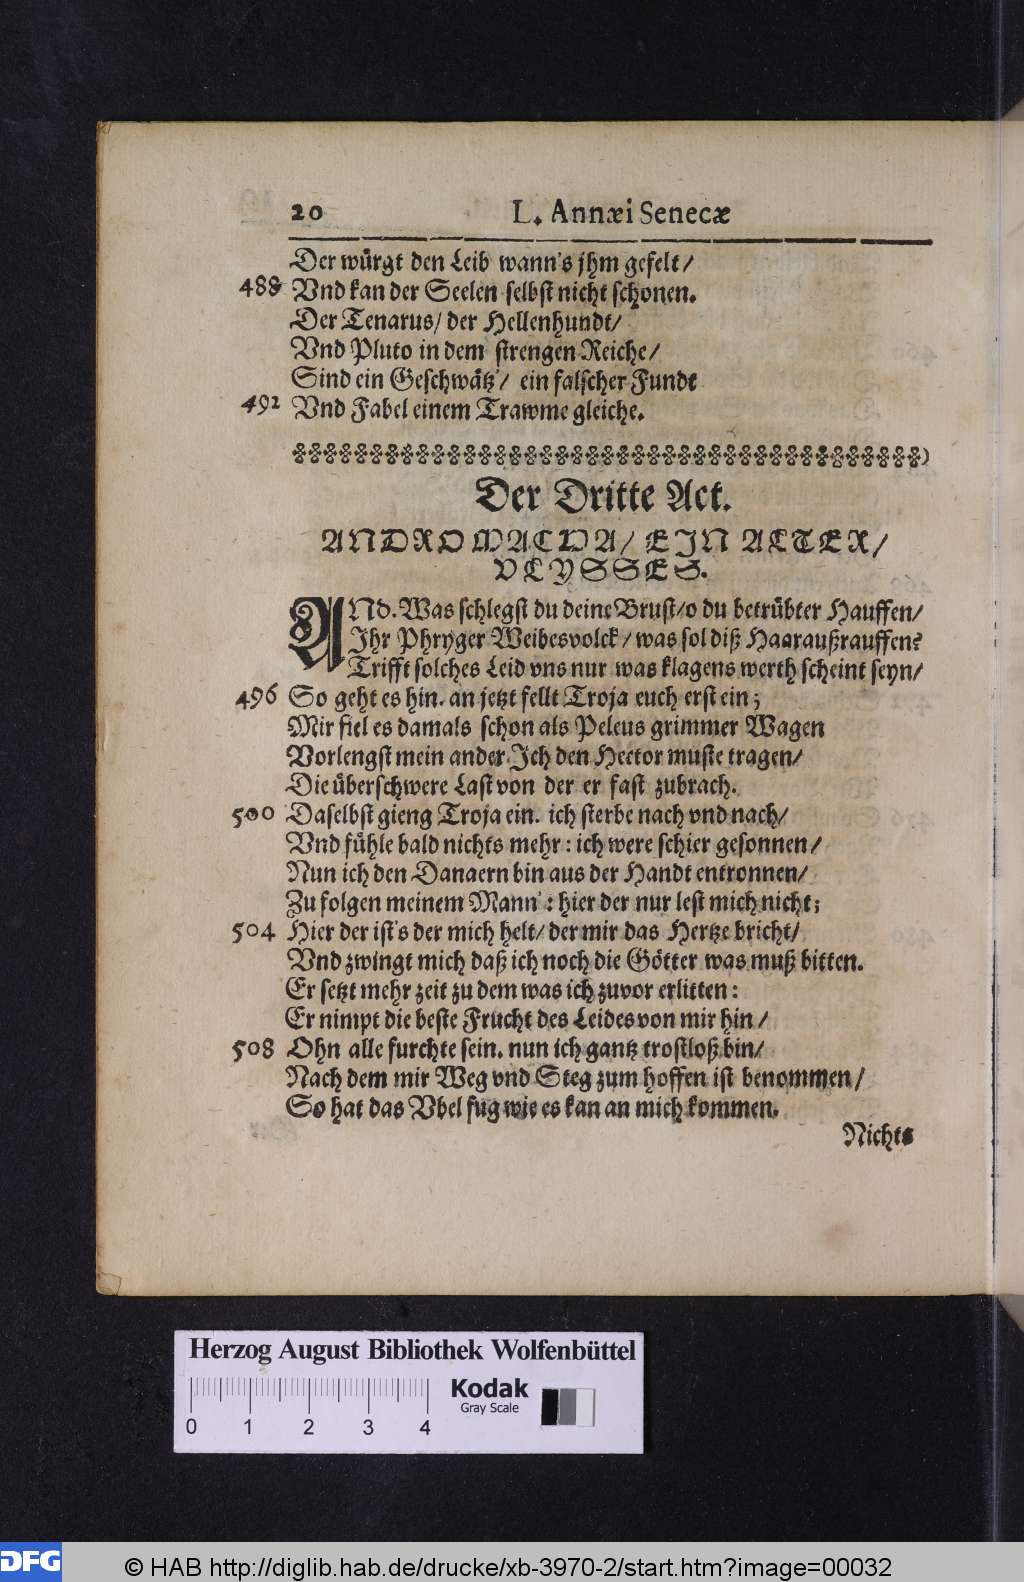 20 L. Annæi Senecæ
Der würgt den Leib wann's jhm gefelt/
488 Vnd kan der Seelen selbst nicht schonen.
Der Tenarus/ der Hellenhundt/
Vnd Pluto in dem strengen Reiche/
Sind ein Geschwätz/ ein falscher Fundt
492 Vnd Fabel einem Trawme gleiche.
Der Dritte Act.
ANDROMACHA/ EJN ALTER/
VLYSSES.
ANd. Was schlegst du deine Brust/o du betrübter Hauffen/
Jhr Phryger Weibesvolck/ was sol diß Haaraußrauffen?
Trifft solches Leid vns nur was klagens werth scheint seyn/
496 So geht es hin. an jetzt fellt Troja euch erst ein;
Mir fiel es damals schon als Peleus grimmer Wagen
Vorlengst mein ander Jch den Hector muste tragen/
Die überschwere Last von der er fast zubrach.
500 Daselbst gieng Troja ein. ich sterbe nach vnd nach/
Vnd fühle bald nichts mehr: ich were schier gesonnen/
Nun ich den Danaern bin aus der Handt entronnen/
Zu folgen meinem Mann': hier der nur lest mich nicht;
504 Hier der ist's der mich helt/ der mir das Hertze bricht/
Vnd zwingt mich daß ich noch die Götter was muß bitten.
Er setzt mehr zeit zu dem was ich zuvor erlitten:
Er nimpt die beste Frucht des Leides von mir hin/
508 Ohn alle furchte sein. nun ich gantz trostloß bin/
Nach dem mir Weg vnd Steg zum hoffen ist benommen/
So hat das Vbel fug wie es kan an mich kommen.
Nichts
Herzog August Bibliothek Wolfenbüttel
0 1 2 3 4
Kodak
Gray Scale
DFG
© HAB http://diglib.hab.de/drucke/xb-3970-2/start.htm?image=00032